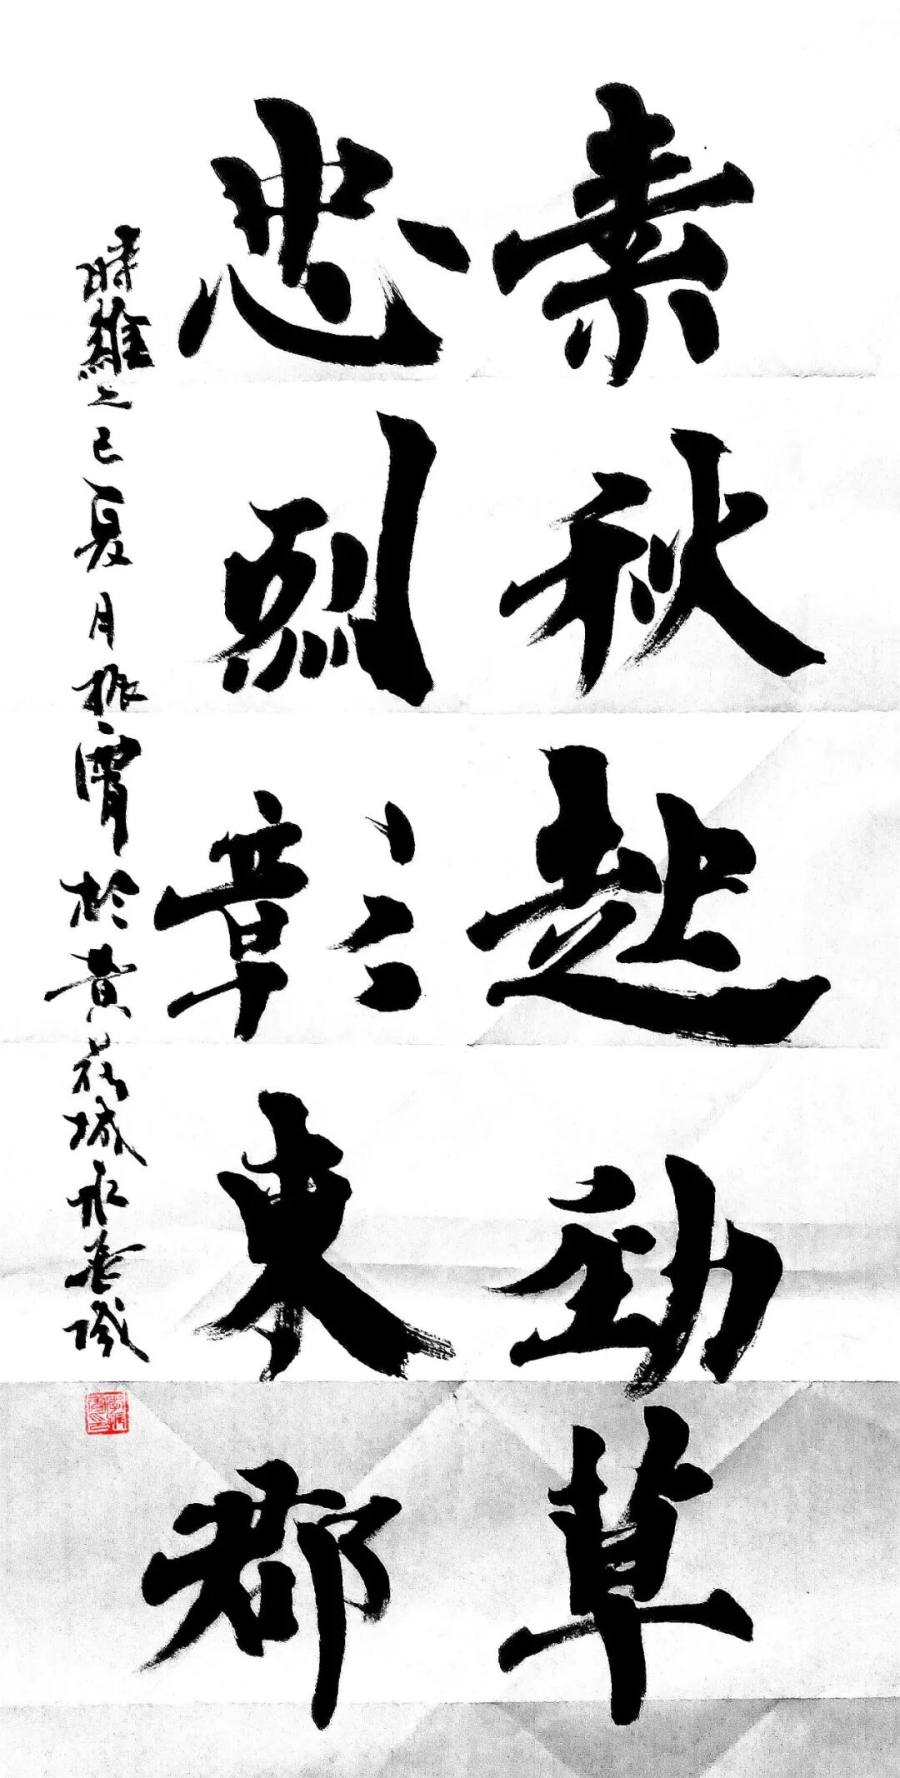 素秋勁草
忠烈彰東郡
時維乙巳夏月振霄於黄花城永識